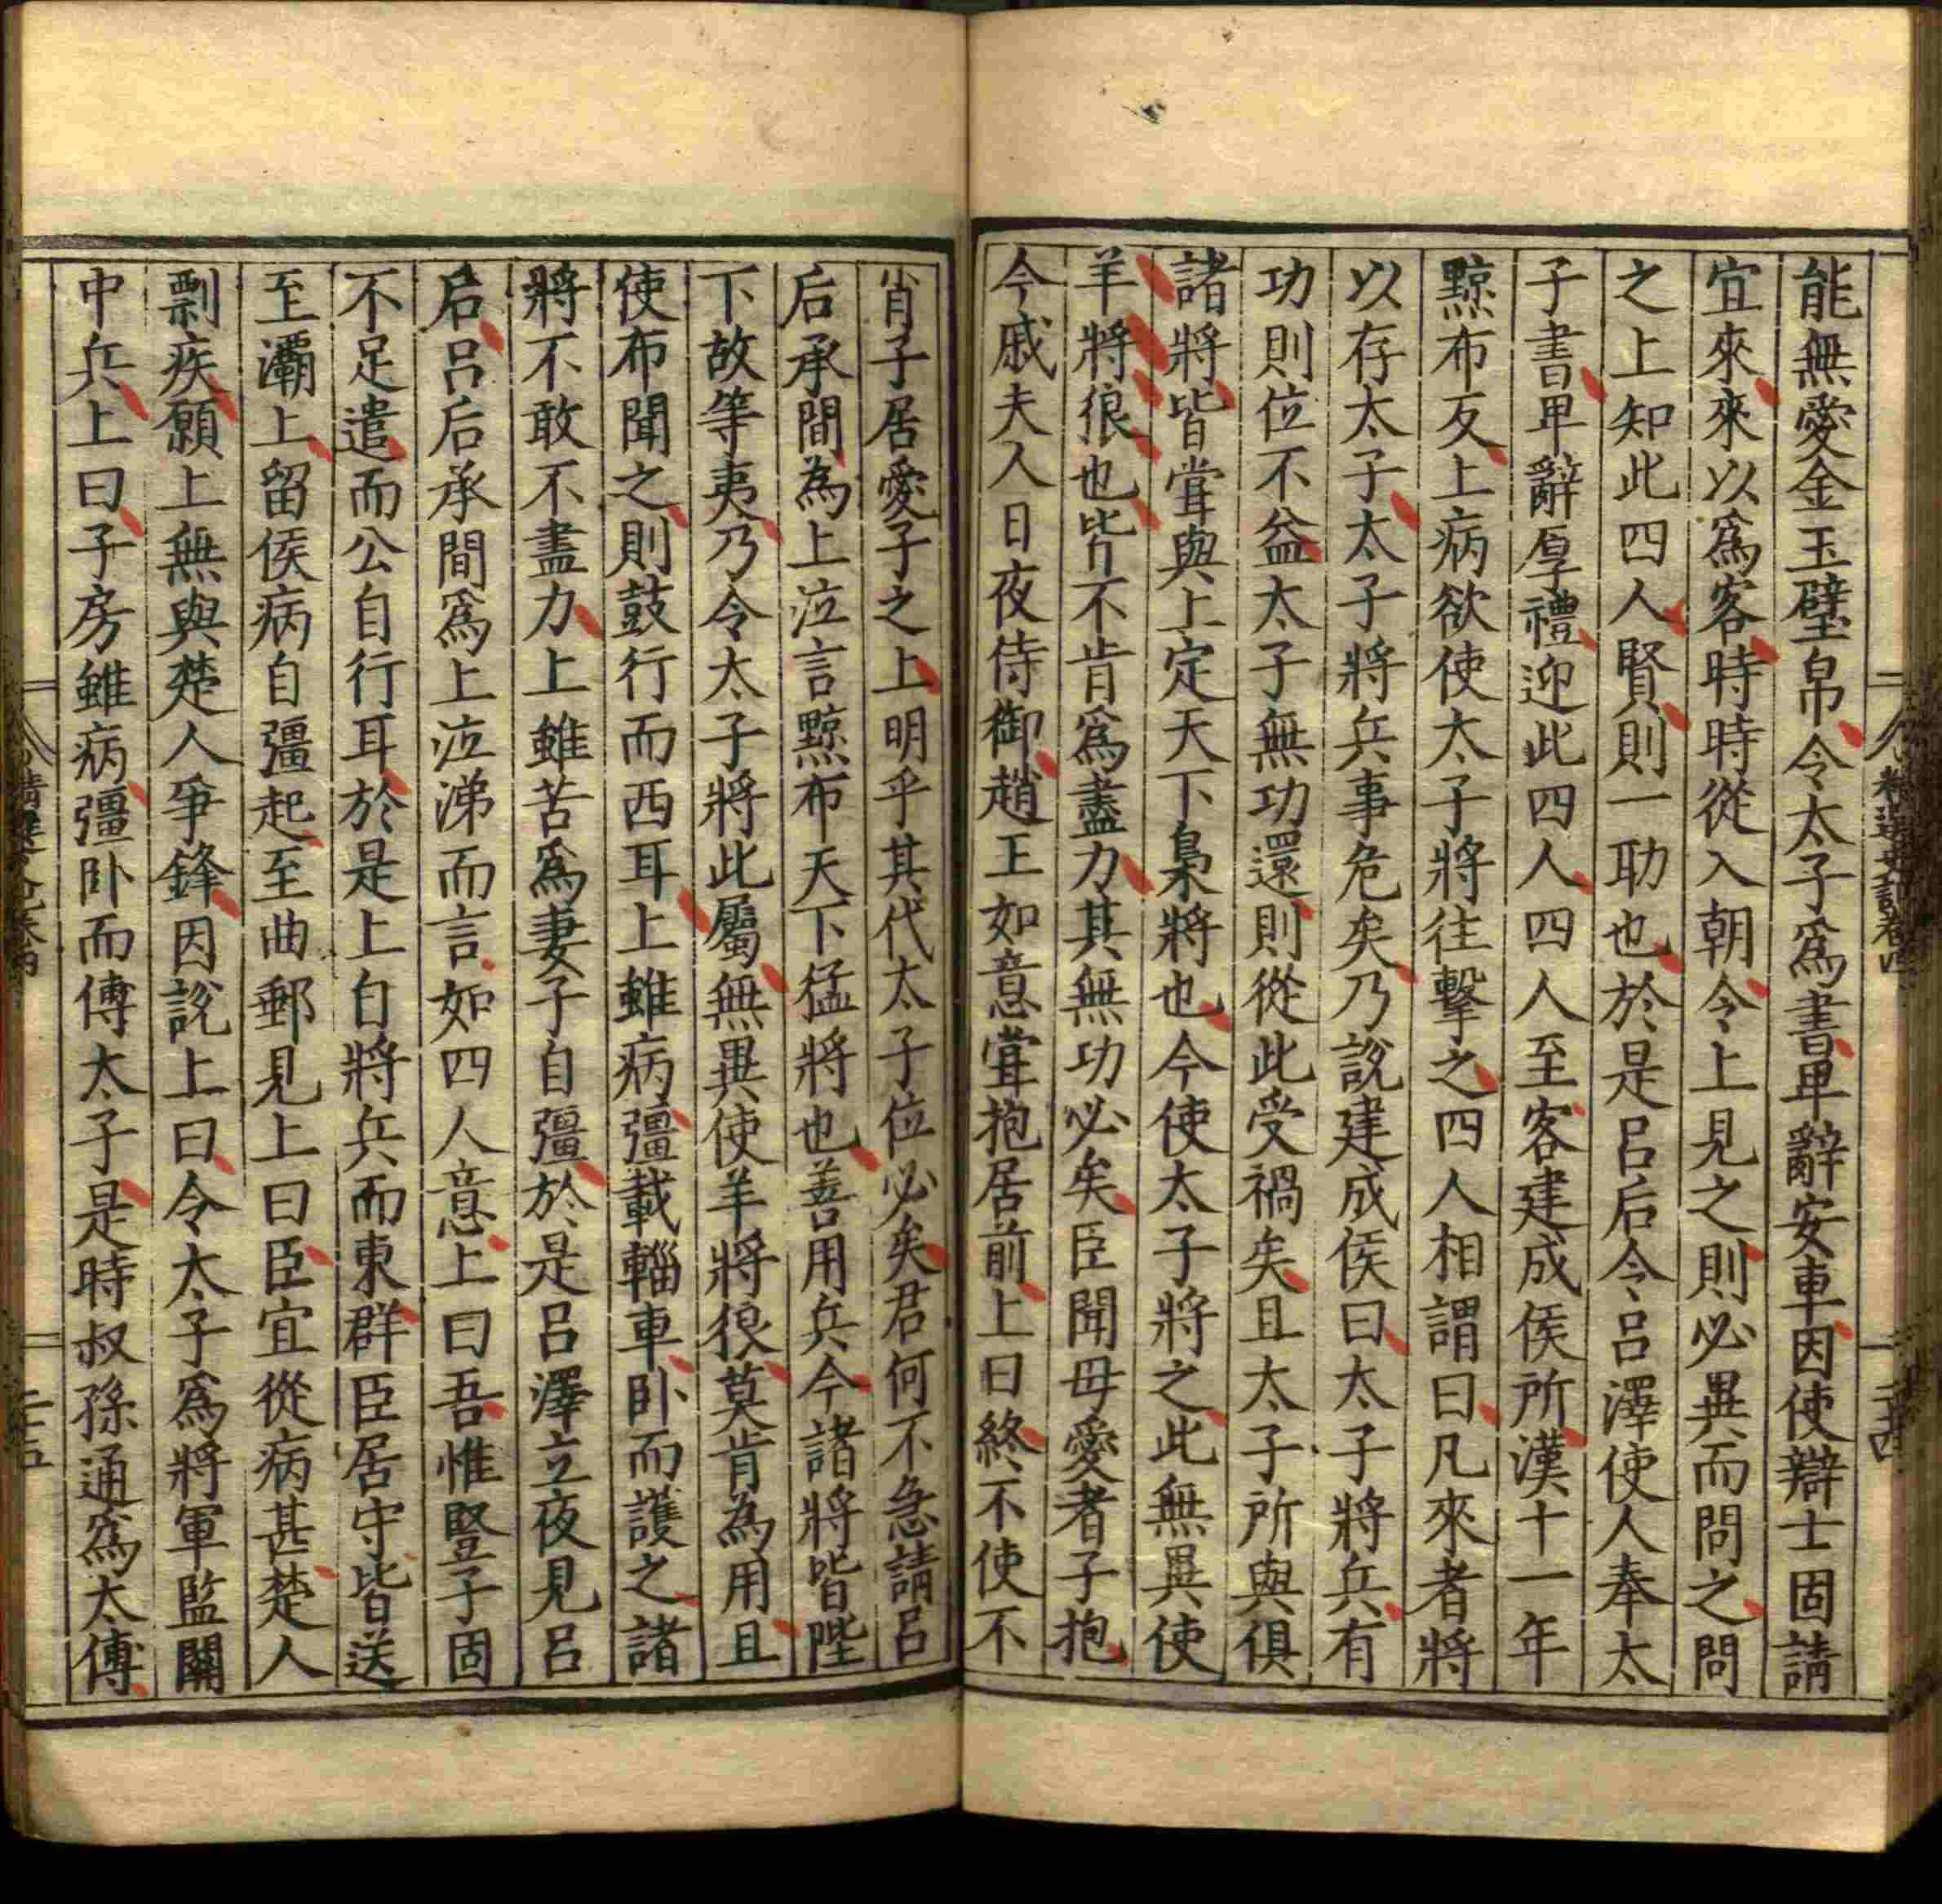 能無愛金玉璧帛令太子爲書卑辭安車因使辯士固請
宜來來以爲客時時從入朝令上見之則必異而問之問
之上知此四人賢則一助也於是呂后令呂澤使人奉太
子書卑辭厚禮迎此四人四人至客建成侯所漢十一年
黥布反上病欲使太子將往擊之四人相謂曰凡來者將
以存太子太子將兵事危矣乃說建成侯曰太子將兵有
功則位不益太子無功還則從此受禍矣且太子所與俱
諸將皆甞與上定天下梟將也今使太子將之此無異使
羊將狼也皆不肯爲盡力其無功必矣臣聞母愛者子抱
今戚夫人日夜侍御趙王如意甞抱居前上曰終不使不
肖子居愛子之上明乎其代太子位必矣君何不急請呂
后承間為上泣言黥布天下猛將也善用兵今諸將皆陛
下故等夷乃令太子將此屬無異使羊將狼莫肯為用且
使布聞之則鼓行而西耳上雖病彊載輜車卧而護之諸
將不敢不盡力上雖苦爲妻子自彊於是呂澤立夜見呂
后呂后承間爲上泣涕而言如四人意上曰吾惟豎子固
不足遣而公自行耳於是上自將兵而東群臣居守皆送
至灞上留侯病自彊起至曲郵見上曰臣宜從病甚楚人
剽疾願上無與楚人爭鋒因說上曰令太子爲將軍監關
中兵上曰子房雖病彊卧而傅太子是時叔孫通爲太傅